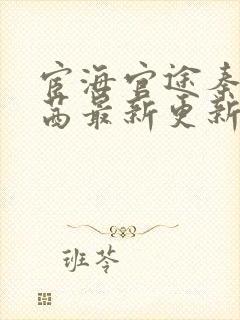 宦海官途秦
茜最新更新
班苓